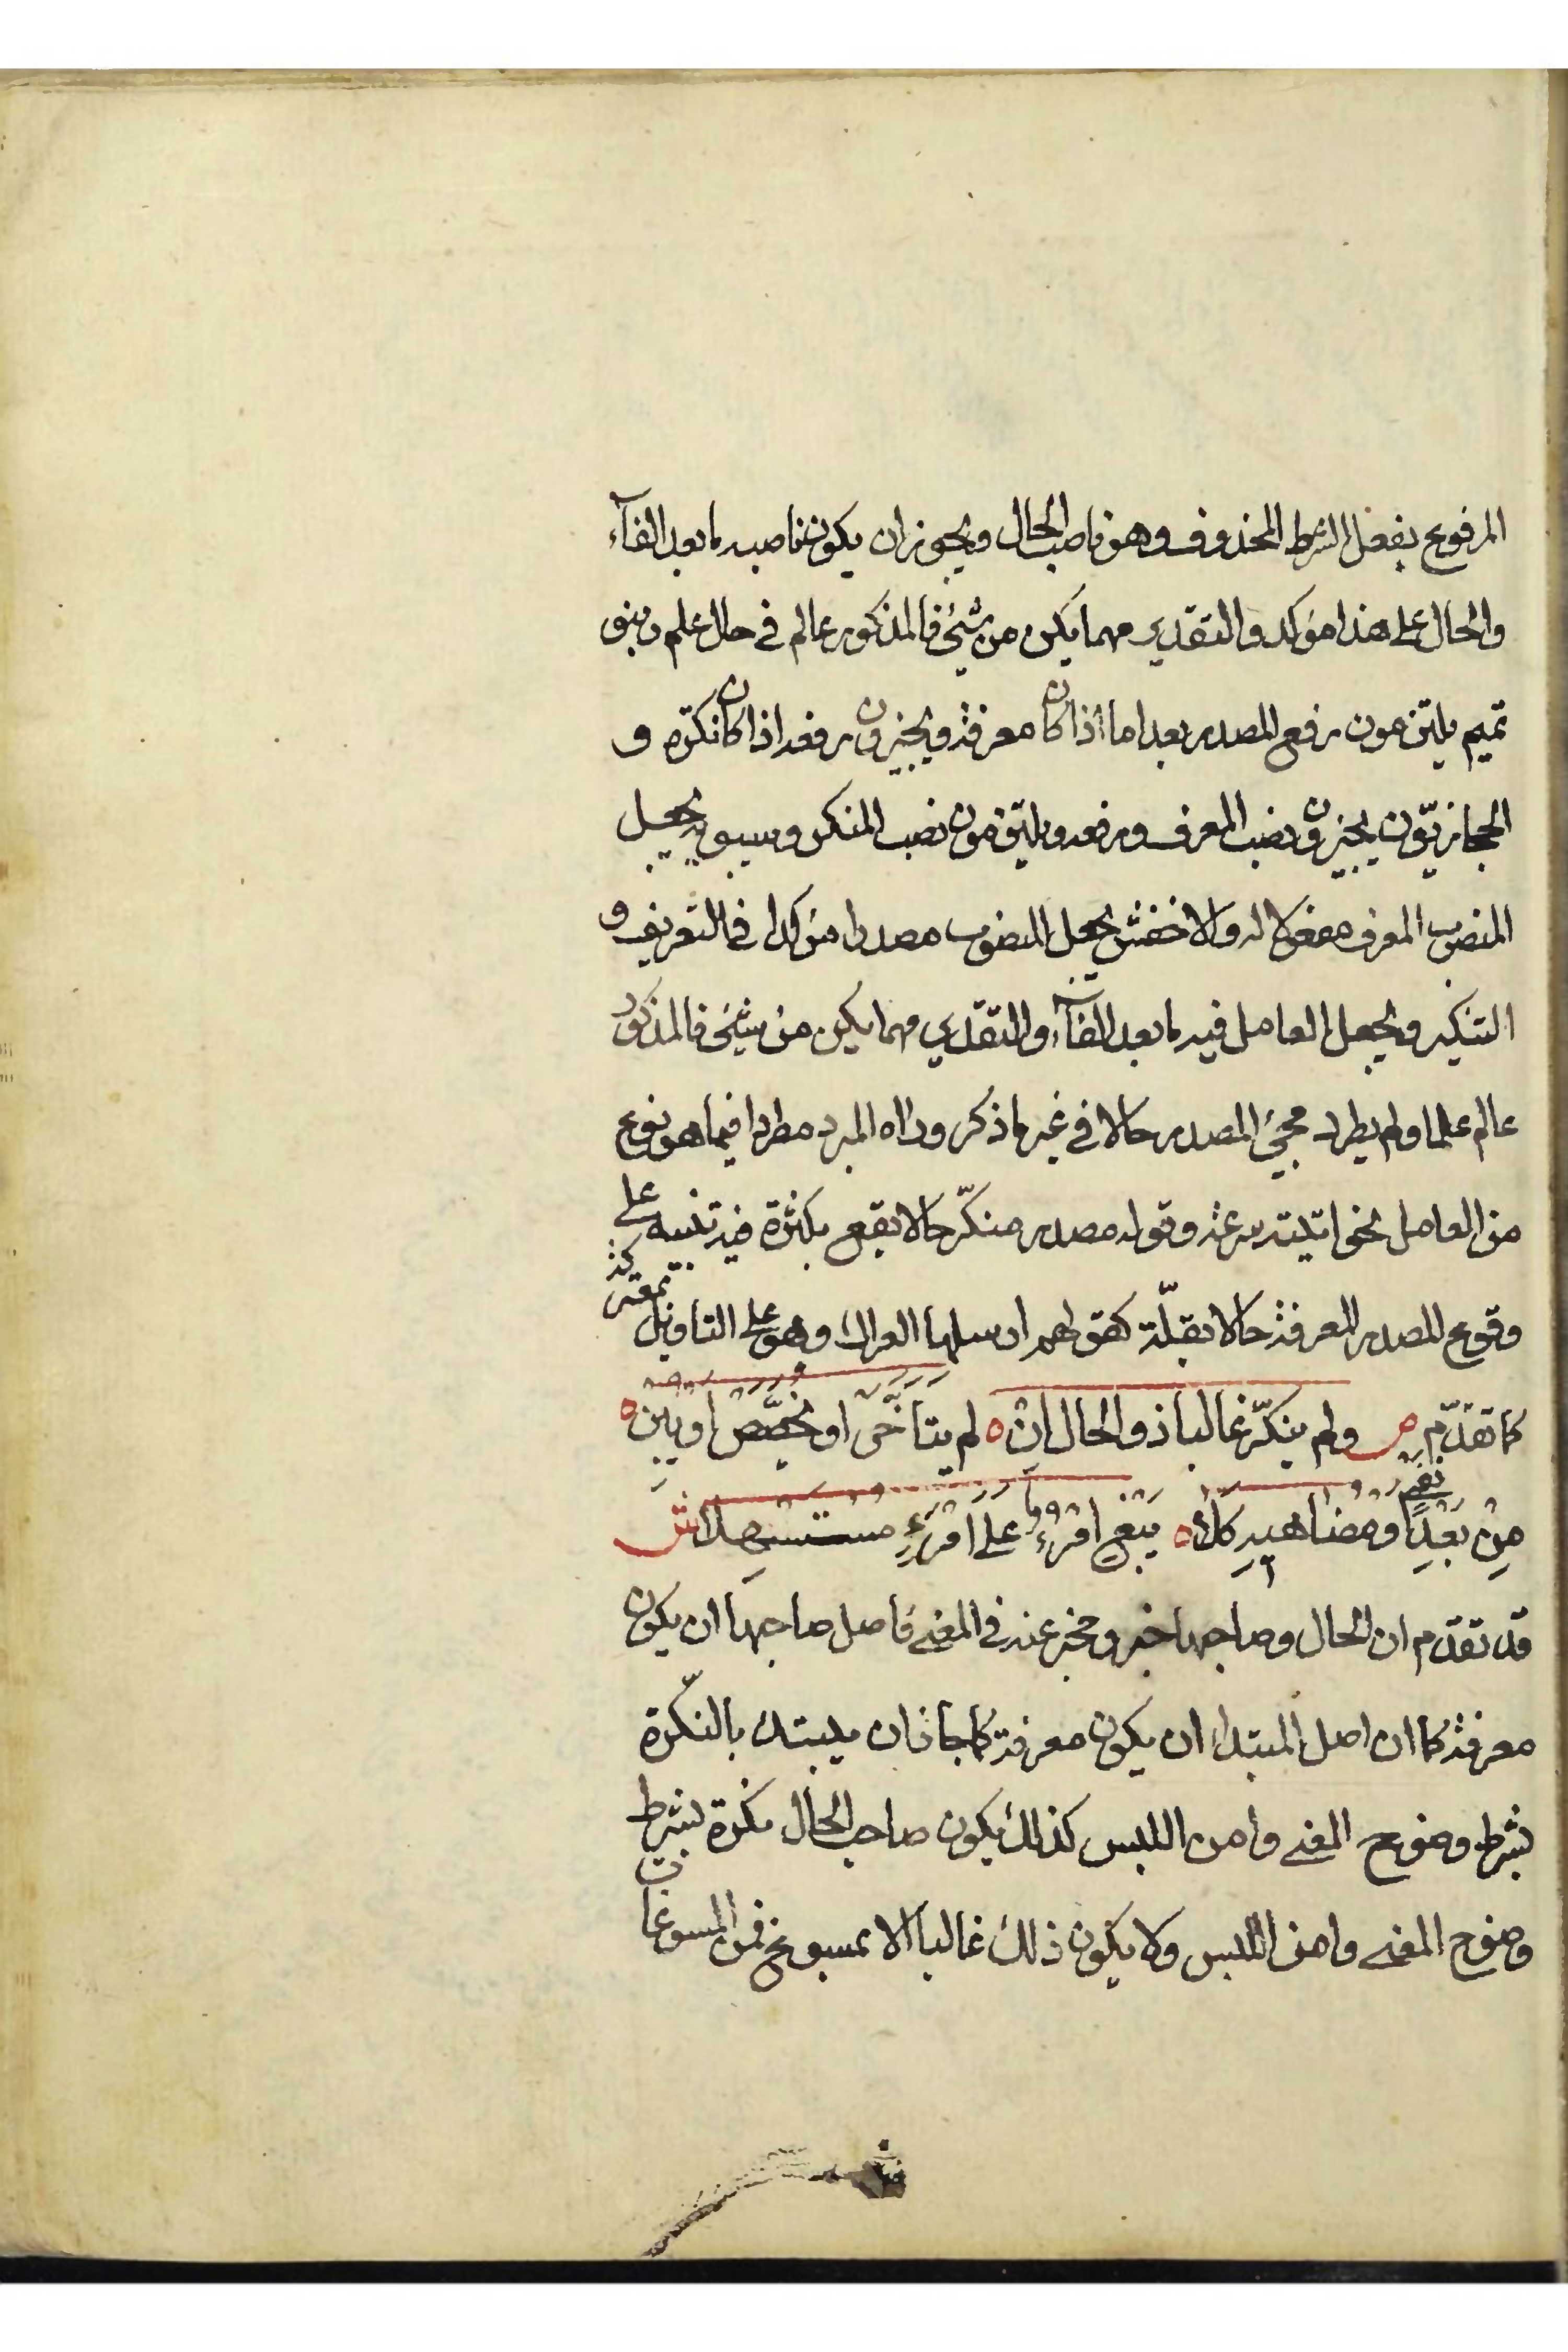 المرفوع بفعل الشرط المحذوف وهو ناصب الحال ويجوز ان يكون ناصبه ما بعد الفآء
والحال على هذا مؤكد والتقدير مهما يكن من شيئ فالمذكور عالم في حال علم وبنو
تميم يلتزمون رفع المصدر بعد اما اذا كان معرفة ويجيزون رفعه اذا كان نكرة و
الحجازيّون يجيزون نصب المعرف ورفعه ويلتزمون نصب المنكر وسيبويه يجعل
المنصوب المعرف مفعولا له والاخفش يجعل المنصوب مصدرا مؤكدا في التعريف و
التنكير ويجعل العامل فيه ما بعد الفآء والتقدير مهما يكن من شيئ فالمذكور
عالم علما ولم يطرد مجيئ المصدر حالا في غير ما ذكر وراه المبرد مطردا فيما هو نوع
من العامل نحو اتيته سرعة وقوله مصدر منكّر حالا يقع بكثرة فيه تنبيه على
وقوع المصدر المعرفة حالا بقلّة كقولهم ارسلها العراك وهو على التاويل بمعتركة
كما تقدّم ص ولم ينكّر غالبا ذو الحال ان ه لم يتأخّر او يخصّص او يبن ه
من بعد نفي او مضاهيه كلا ه يبغ امرؤ على امرئ مستسهلا ش
قد تقدم ان الحال وصاحبها خبر ومخبر عنه في المعنى فاصل صاحبها ان يكون
معرفة كما ان اصل المبتدا ان يكون معرفة كما جاز ان يبتدا بالنكّرة
بشرط وضوح المعنى وامن اللبس كذلك يكون صاحب الحال نكرة بشرط
وضوح المعنى وامن اللبس ولا يكون ذلك غالبا الا بمسوغ فمن المسوغات